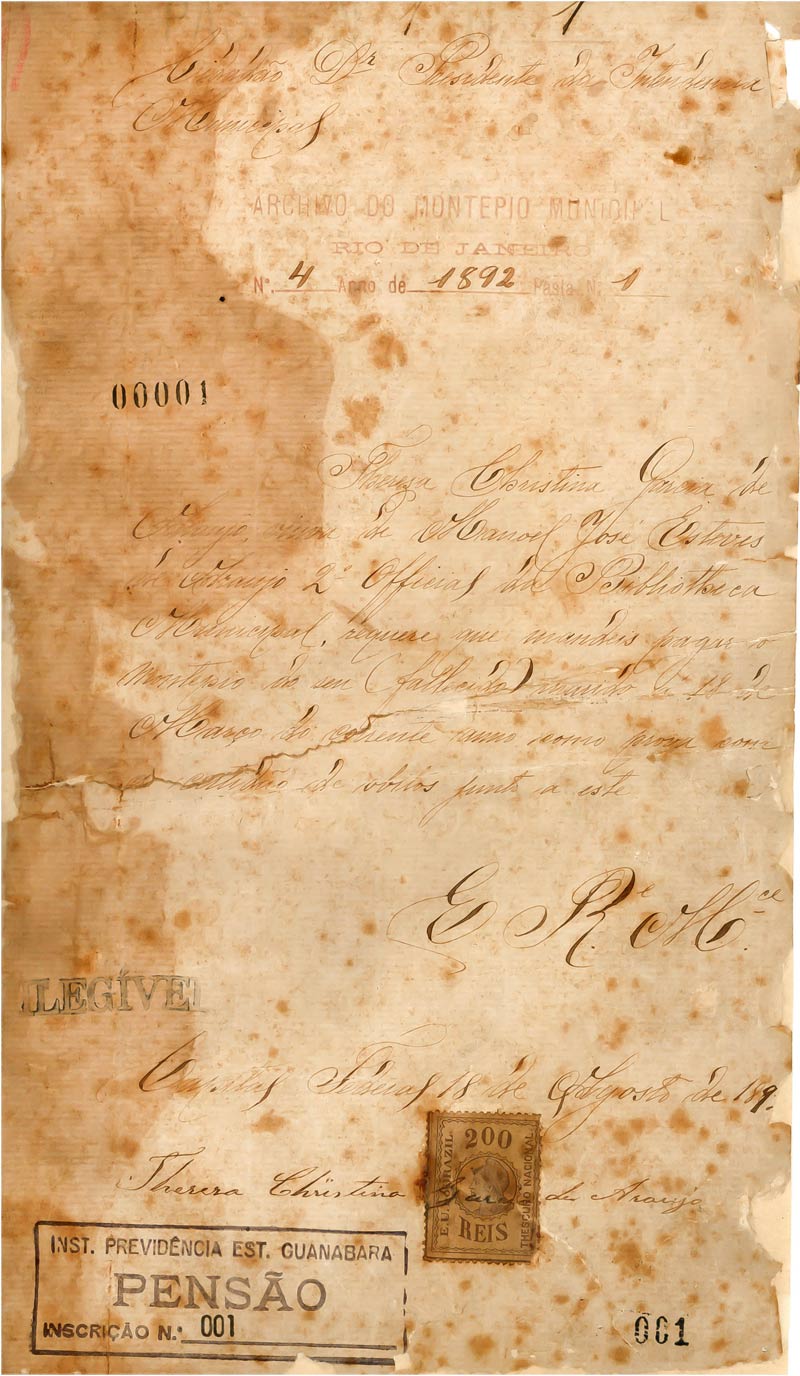 1
Cidadão Dr Presidente da Intendencia
Municipal
ARCHIVO DO MONTEPIO MUNICIPAL
RIO DE JANEIRO
No. 4 Anno de 1892 Pasta N. 1
00001
Thereza Christina Garcia de
Araujo, viuva de Manoel José Esteves
de Araujo 2º Official da Bibliotheca
Municipal, requer que mandeis pagar o
montepio do seu (fallecido) marido a de
Março do corrente anno como prova com
a certidão de obitos junto a este
E. R. Mce
ILEGÍVEL
Capital Federal 18 de Agosto de 189
200
E.U. DO BRAZIL
THESOURO NACIONAL
REIS
Thereza Christina Garcia de Araujo
INST. PREVIDÊNCIA EST. GUANABARA
PENSÃO
INSCRIÇÃO N.º 001
001